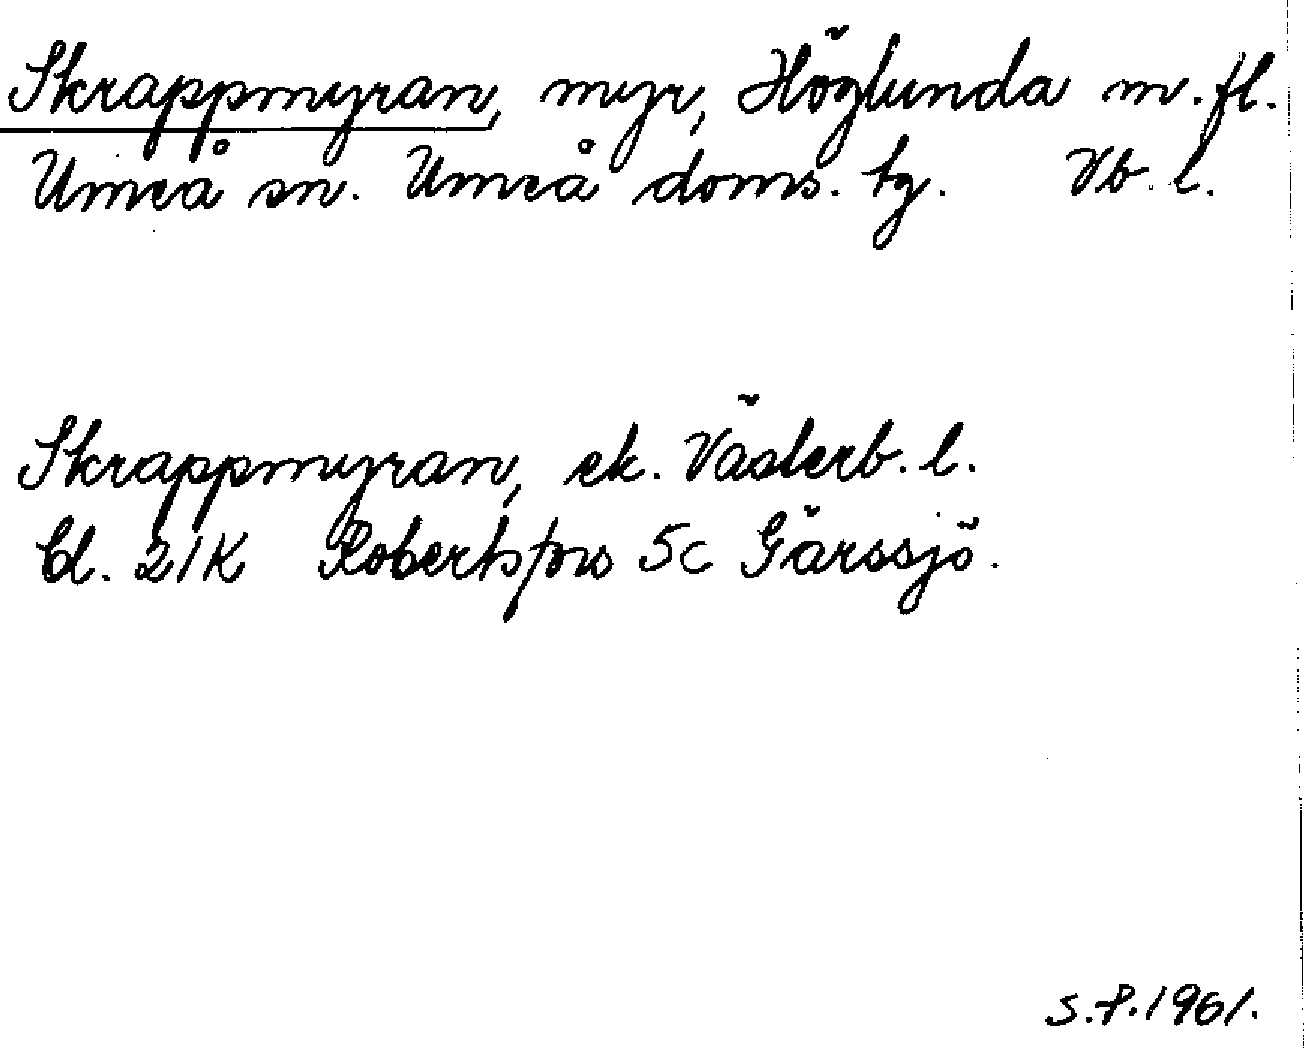 Skrappmyran, myr, Höglunda m.fl.
Umeå sn. Umeå doms. tg. Vb. l.
Skrappmyran, ek. Västerb. l.
bl. 21K Robertsfors 5c Gärssjö.
S.P. 1961.